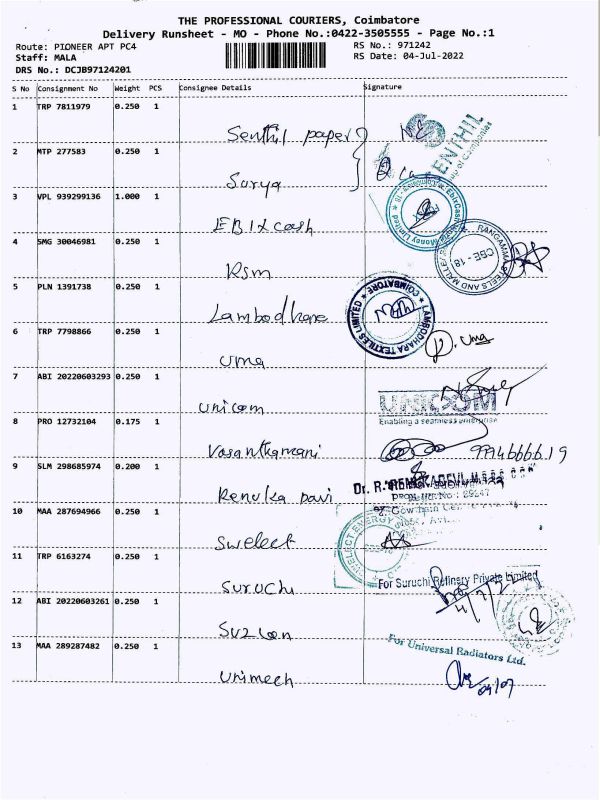 THE PROFESSIONAL COURIERS, Coimbatore
Delivery Runsheet - MO - Phone No.:0422-3505555 - Page No.:1
Route: PIONEER APT PC4 RS No.: 971242
Staff: MALA RS Date: 04-Jul-2022
DRS No.: DCJB97124201
S No Consignment No Weight PCS Consignee Details Signature
1 TRP 7811979 0.250 1
Senthil paper
2 MTP 277583 0.250 1
Surya
3 VPL 939299136 1.000 1
EBIXcash
4 SMG 30046981 0.250 1
RSm
5 PLN 1391738 0.250 1
Lambodhara
LAMBODHARA TEXTILES LIMITED COIMBATORE
6 TRP 7798866 0.250 1
uma
P. Uma
7 ABI 20220603293 0.250 1
unicom
UNICOM
Enabling a seamless enterprise
8 PRO 12732104 0.175 1
Vasanthamani
9 SLM 298685974 0.200 1
Renuka
10 MAA 287694966 0.250 1
Swelect
11 TRP 6163274 0.250 1
Suruchi
For Suruchi Refinery Private Limited
4/7/22
12 ABI 20220603261 0.250 1
Suzlon
13 MAA 289287482 0.250 1
For Universal Radiators Ltd.
Unimech
04/07